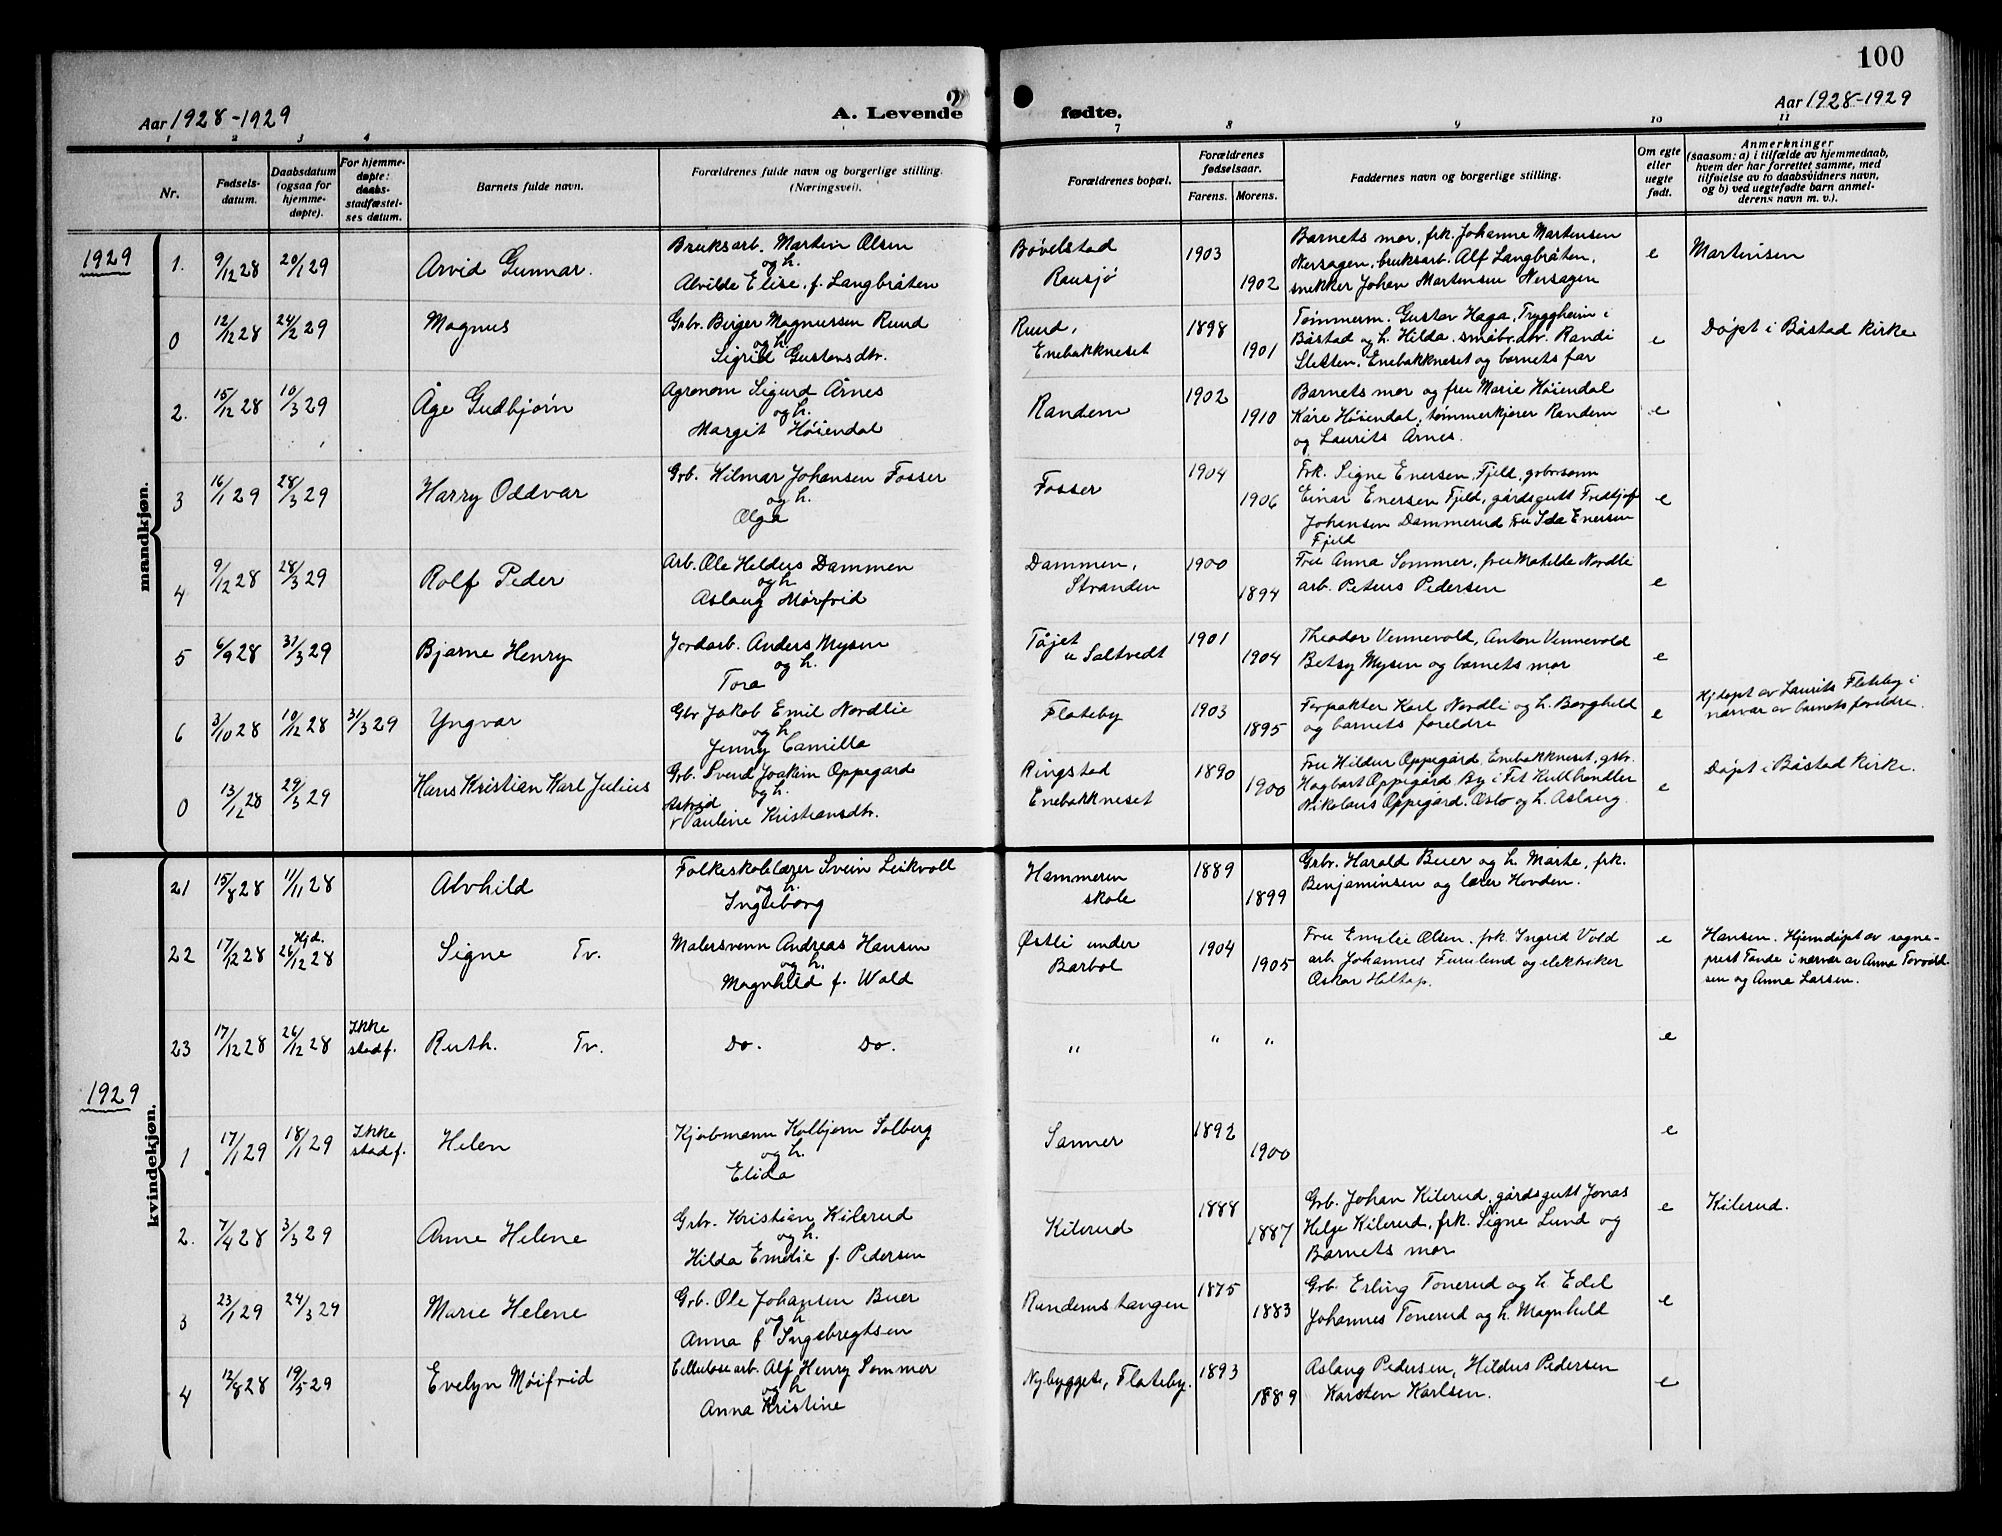 100
Aar 1928-1929
A. Levende
fødte.
Aar 1928-1929
1 2 3 4
7 8 9 10 11
Nr.
Fødsels-
datum.
Daabsdatum
(ogsaa for
hjemme-
døpte).
For hjemme-
døpte:
daabs-
stadfæstel-
ses datum.
Barnets fulde navn.
Forældrenes fulde navn og borgerlige stilling.
(Næringsvei).
Forældrenes bopæl.
Forældrenes
fødselsaar.
Farens. Morens.
Faddernes navn og borgerlige stilling.
Om egte
eller
uegte
født.
Anmerkninger
(saasom: a) i tilfælde av hjemmedaab,
hvem der har forrettet samme, med
tilføielse av to daabsvidners navn,
og b) ved uegtefødte barn anmel-
derens navn m. v.).
1929
mandkjøn.
1. 9/12 28 20/1 29 Arvid Gunnar.
Bruksarb. Martin Olsen
og h.
Alvilde Elise f. Langbråten
Bøvelstad
Rausjø
1903
1902
Barnets mor, frk. Johanne Martinsen
Nersagen, bruksarb. Alf Langbråten,
snekker Johan Martinsen Nersagen
e
Martinsen
0 12/12 28 24/2 29 Magnus
Grbr. Birger Magnussen Ruud
og h.
Sigrid Gustavsdtr.
Ruud,
Enebakkneset
1898
1901
Tømmerm. Gustav Haga, Tryggheim i
Båstad og h. Hilda. småbr.dtr. Randi
Sletten, Enebakkneset og barnets far
e
Døpt i Båstad kirke
2. 15/12 28 10/3 29 Åge Gudbjørn
Agronom Sigurd Årnes
og h.
Margit Høiendal
Randem
1902
1910
Barnets mor og fru Marie Høiendal
Kåre Høiendal, tømmerkjører Randem
og Laurits Årnes.
e
3 16/1 29 28/3 29 Harry Oddvar
Grb. Hilmar Johansen Fosser
og h.
Olga
Fosser
1904
1906
Frk. Signe Enersen, Fjeld, grbr.sønn
Einar Enersen Fjeld, gårdsgutt Fredtjof
Johansen Dammerud Fru Ida Enersen
Fjeld
e
4 9/12 28 28/3 29 Rolf Peder
Arb. Ole Heldus Dammen
og h
Aslaug Mørfrid
Dammen,
Stranden
1900
1894
Fru Anna Sommer, fru Matilde Nordli
arb. Petrus Pedersen
e
5 6/9 28 31/3 29 Bjarne Henry
Jordarb. Anders Mysen
og h.
Tora
Tåjet
u Saltvedt
1901
1904
Theodor Vennevold, Anton Vennevold
Betsy Mysen og barnets mor
e
6 3/10 28 10/12 28 31/3 29 Yngvar
Gbr Jakob Emil Nordlie
og h
Jenny Camilla
Flateby
1903
1895
Forpakter Karl Nordli og h. Borghild
og barnets foreldre
e
Hjdøpt av Laurits Flateby i
nærvær av barnets foreldre.
0 13/1 28 29/3 29 Hans Kristian Karl Julius
Grb. Svend Joakim Oppegard
og h.
Astrid
v Pauline Kristiansdtr.
Ringstad
Enebakkneset
1890
1900
Fru Hildur Oppegård, Enebakkneset, grbr.
Hagbart Oppegård By i Fet Kullhandler
Nikolaus Oppegård. Oslo og h. Aslaug.
e
Døpt i Båstad Kirke.
21 15/8 28 11/11 28 Alvhild
Folkeskolelærer Svein Leikvoll
og h.
Ingeborg
Hammeren
skole
1889
1899
Grbr. Harald Buer og h. Marte, frk.
Benjaminsen og lærer Hovden.
22 17/12 28 Hjd. 26/12 28 Signe Tv.
Malersvenn Andreas Hansen
og h.
Magnhild f. Wold
Østli under
Barbøl
1904
1905
Fru Emilie Olsen, frk. Ingrid Vold
arb. Johannes Furulund og elektriker
Oskar Holtop.
e
Hansen. Hjemdøpt av sogne-
prest Tande i nærvær av Anna Torvald-
sen og Anna Larsen.
23 17/12 28 26/12 28 Ikke
stadf.
Ruth. Tv.
Do. Do.
" " "
e
1929
kvindekjøn.
1 17/1 29 18/1 29 Ikke
stadf.
Helen
Kjøbmann Kolbjørn Solberg
og h.
Elida
Sanner
1892
1900
e
2. 7/4 28 3/3 29 Anne Helene
Grbr. Kristian Kilerud
og h.
Hilda Emelie f. Pedersen
Kilerud
1888
1887
Grb. Johan Kilerud, gårdsgutt Jonas
Helje Kilerud, frk. Signe Lund og
Barnets mor
e
Kilerud.
3 23/1 29 24/3 29 Marie Helene
Grb. Ole Johansen Buer
og h
Anna f Ingebregtsen
Randemstangen
1875
1883
Grb. Erling Tonerud og h. Edel
Johannes Tonerud og h. Magnhild
e
4 12/8 28 19/5 29 Evelyn Møifrid
Cellulosearb. Alf Henry Sommer
og h
Anna Kristine
Nybygget, Flateby.
1893
1889
Aslaug Pedersen, Hildus Pedersen
Karsten Karlsen.
e